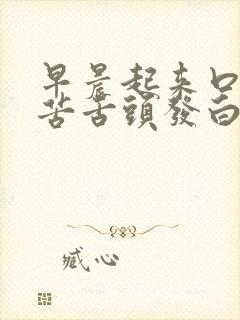 早晨起来口
苦舌頭發白
臧心